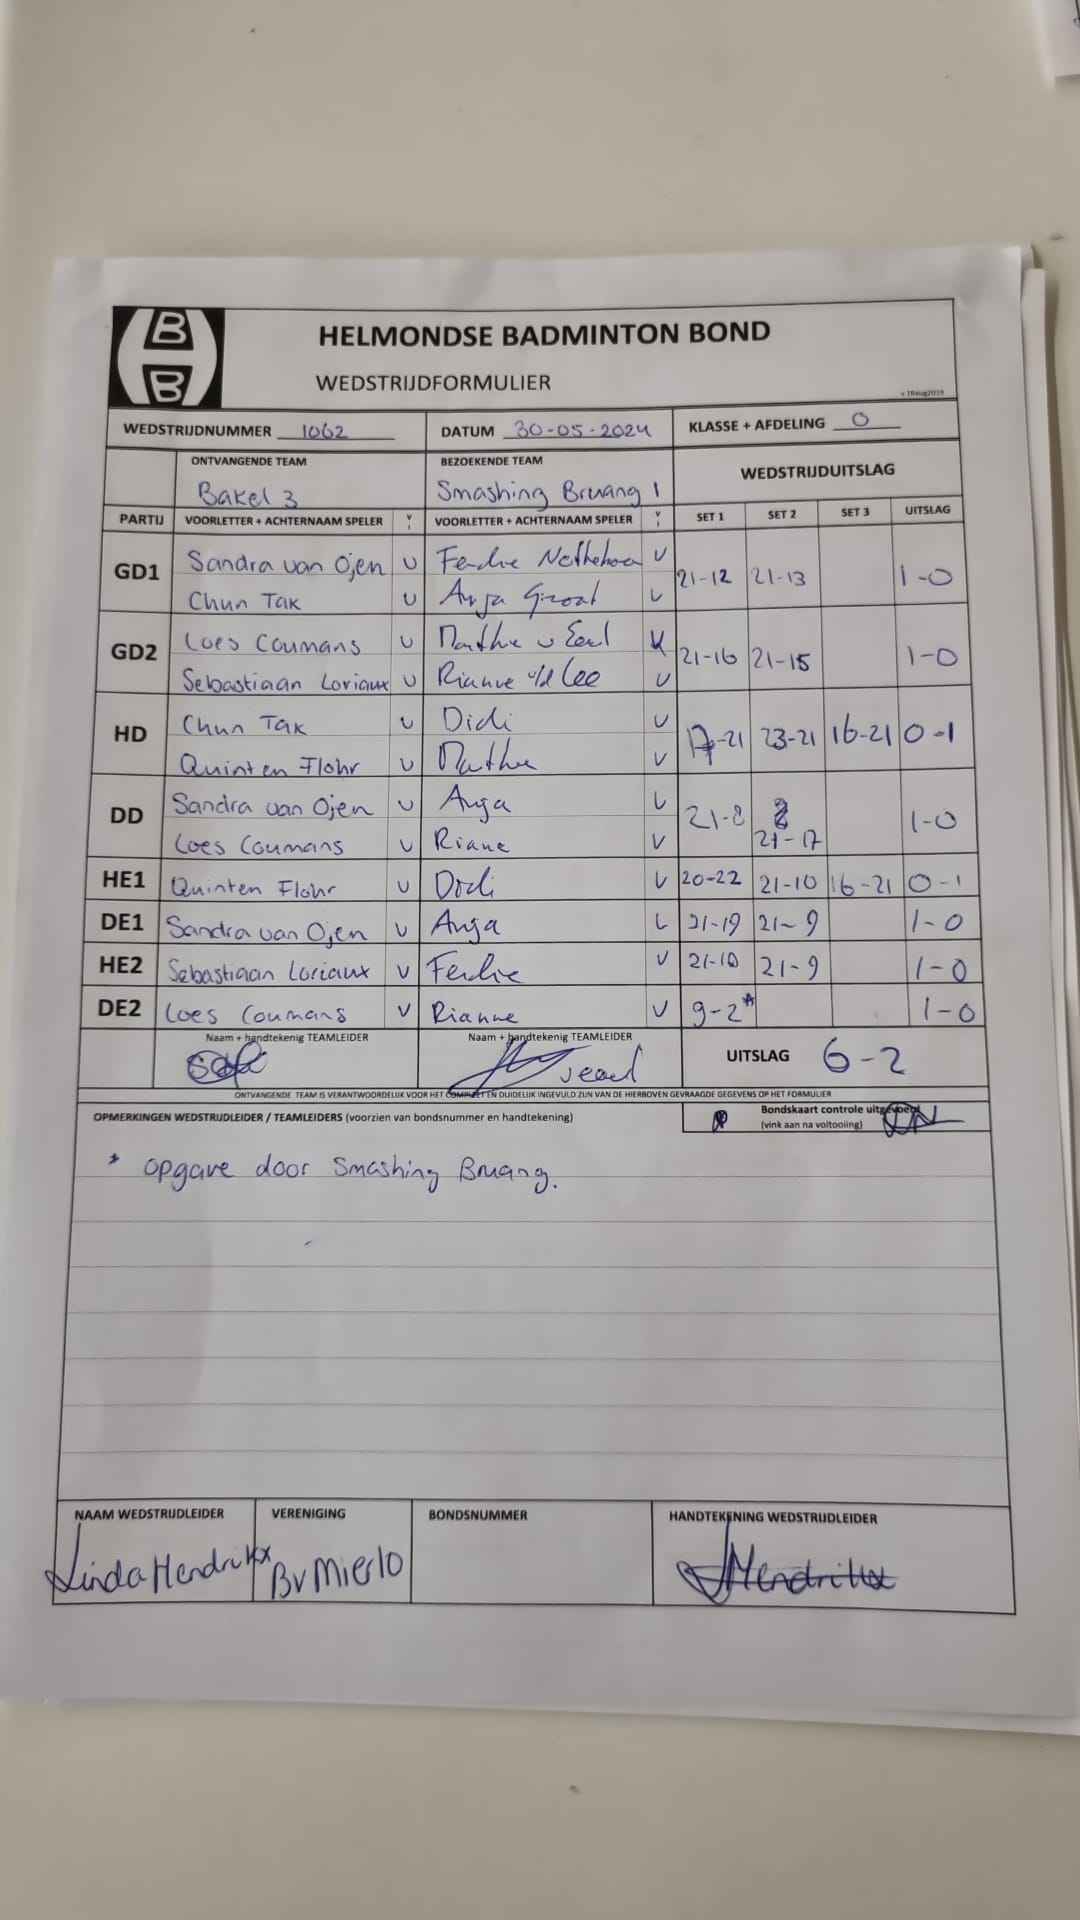 B
B
HELMONDSE BADMINTON BOND
WEDSTRIJDFORMULIER
v 19aug2019
WEDSTRIJDNUMMER 1062 DATUM 30-05-2024 KLASSE + AFDELING 0
ONTVANGENDE TEAM BEZOEKENDE TEAM WEDSTRIJDUITSLAG
Bakel 3 Smashing Bruang 1
PARTIJ VOORLETTER + ACHTERNAAM SPELER V/I VOORLETTER + ACHTERNAAM SPELER V/I SET 1 SET 2 SET 3 UITSLAG
GD1 Sandra van Ojen v Ferdie v 21-12 21-13 1-0
Chun Tak v Anja Groot v
GD2 Loes Coumans v Mathie v 21-16 21-15 1-0
Sebastiaan Loriaux v Rianne v/d Lee v
HD Chun Tak v Didi v 17-21 23-21 16-21 0-1
Quinten Flohr v Mathie v
DD Sandra van Ojen v Anja v 21-8 21-17 1-0
Loes Coumans v Riane v
HE1 Quinten Flohr v Didi v 20-22 21-10 16-21 0-1
DE1 Sandra van Ojen v Anja v 21-19 21-9 1-0
HE2 Sebastiaan Loriaux v Ferdie v 21-10 21-9 1-0
DE2 Loes Coumans v Rianne v 9-2* 1-0
Naam + handtekenig TEAMLEIDER Naam + handtekenig TEAMLEIDER UITSLAG 6-2
ONTVANGENDE TEAM IS VERANTWOORDELIJK VOOR HET COMPLEET EN DUIDELIJK INGEVULD ZIJN VAN DE HIERBOVEN GEVRAAGDE GEGEVENS OP HET FORMULIER
OPMERKINGEN WEDSTRIJDLEIDER / TEAMLEIDERS (voorzien van bondsnummer en handtekening) Bondskaart controle uitgevoerd
(vink aan na voltooiing)
* opgave door Smashing Bruang.
NAAM WEDSTRIJDLEIDER VERENIGING BONDSNUMMER HANDTEKENING WEDSTRIJDLEIDER
Linda Hendrikx BV Mierlo Hendrikx